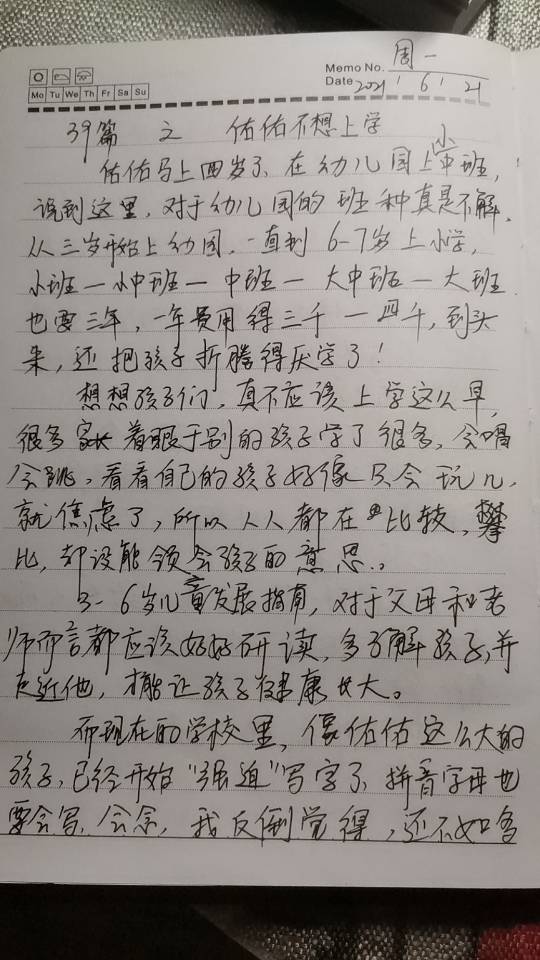 周一
Memo No.
Mo Tu We Th Fr Sa Su
Date 2021 ' 6 ' 21
39篇 之 佑佑不想上学
佑佑马上四岁了、在幼儿园上小中班,
说到这里,对于幼儿园的班种真是不解,
从三岁开始上幼园,一直到6-7岁上小学,
小班一小中班一中班一大中班一大班
也要三年,一年费用得三千一四千,到头
来,还把孩子折腾得厌学了!
想想孩子们,真不应该上学这么早,
很多家长着眼于别的孩子学了很多,会唱
会跳,看看自己的孩子好像只会玩儿,
就焦虑了,所以人人都在比较,攀
比,却没能领会孩子的意思。
3-6岁儿童发展指南,对于父母和老
师而言都应该好好研读,多了解孩子,并
走近他,才能让孩子健康长大。
而现在的学校里,像佑佑这么大的
孩子,已经开始"强迫"写字了,拼音字母也
要会写、会念,我反倒觉得,还不如多